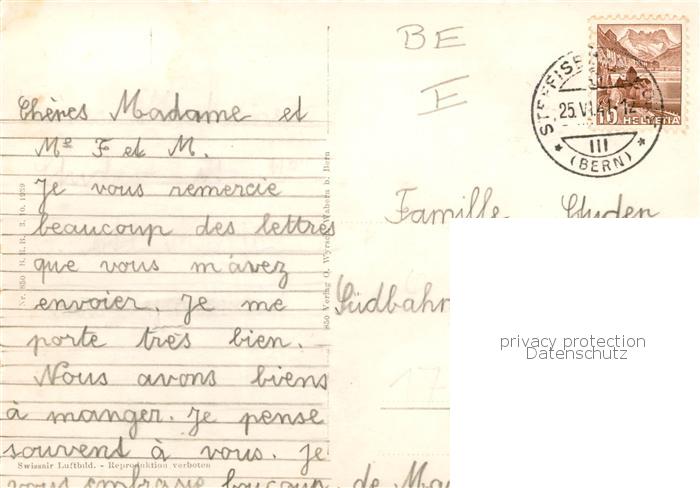 BE
E
STEFFISB
25.VI.41.12
III
(BERN)
10 HELVETIA
Chères Madame et
Mᵉ F et M.
Je vous remercie
beaucoup des lettres
que vous m'avez
envoier. Je me
porte très bien.
Nous avons biens
à manger. Je pense
souvent à vous. Je
vous embrasse boucoup. de
Famille Gyden
Südbahn
17
Nr. 850 B.R.B. 3. 10. 1939
850 Verlag O. Wyrsch, Wabern b. Bern
Swissair Luftbild. - Reproduktion verboten
privacy protection
Datenschutz